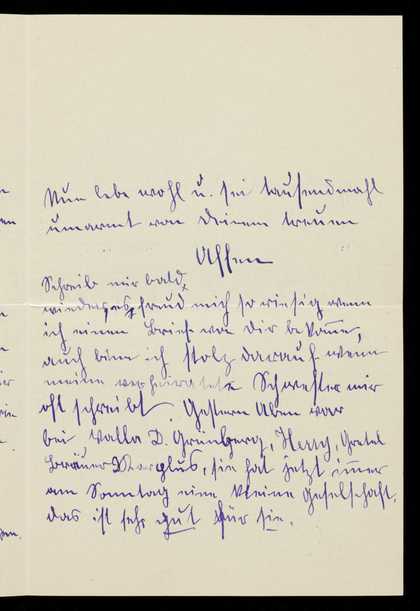 Nun lebe wohl u. sei tausendmahl
umarmt von deinem treuen
Affen
Schreib mir bald
wieder, es freud mich so riesig wenn
ich einen Brief von Dir bekomme,
auch bin ich stolz darauf wenn
meine verheiratete Schwester mir
oft schreibt. Gestern Aben war
bei Walla D. Grünberg, Herry, Gretel
Bräuer, sie hat jetzt immer
am Sonntag eine kleine Geselschaft.
das ist sehr gut für sie.